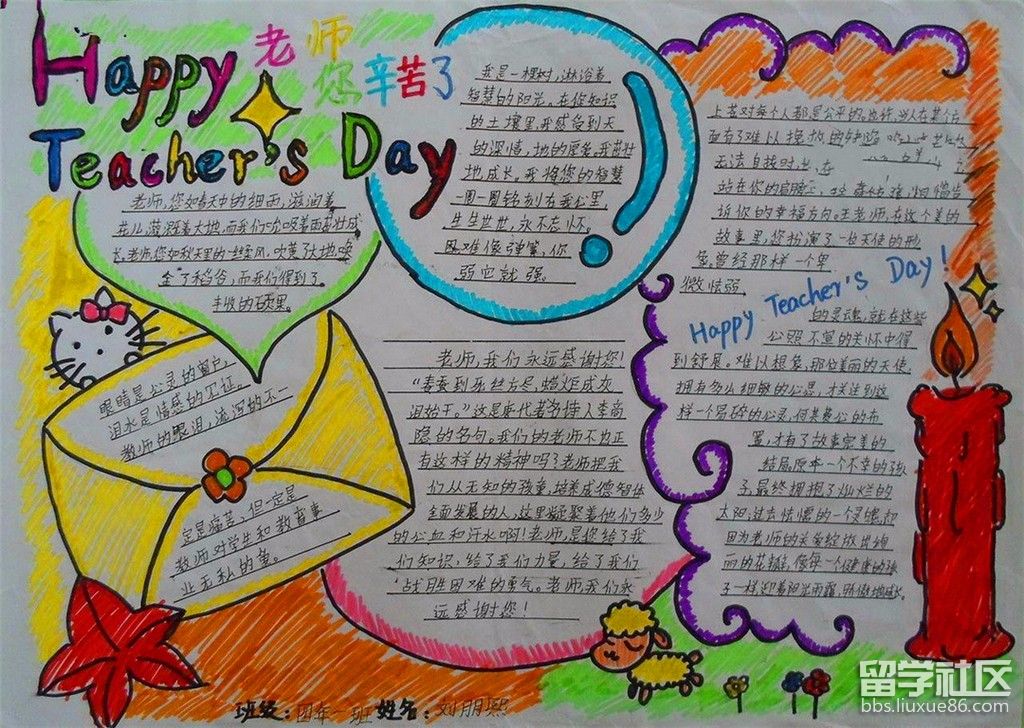 Happy
Teacher's Day
老师
您辛苦了
老师,您如春天中的细雨,滋润着
花儿,滋润着大地,而我们也吸着雨露壮成
长,老师,您如秋天里的一缕秋风,吹黄了大地,唤
金了稻谷,而我们得到了
丰收的硕果。
我是一棵树,淋浴着
智慧的阳光,在您知识
的土壤里,我感受到天
的深情,地的厚爱,我茁壮
地成长,我将您的智慧
一圈一圈铭刻在我心里,
生生世世,永不忘怀。
困难像弹簧,你
弱它就强。
眼睛是心灵的窗户,
泪水是情感的见证。
教师的眼泪,流泻的不一
定是痛苦,但一定是
教师对学生和教育事
业无私的爱。
老师,我们永远感谢您!
“春蚕到死丝方尽,蜡炬成灰
泪始干。”这是唐代著名诗人李商
隐的名句。我们的老师不也正
有这样的精神吗?老师把我
们从无知的孩童,培养成德智体
全面发展的人,这里凝聚着他们多少
的心血和汗水啊!老师,是您给了我
们知识,给了我们力量,给了我们
战胜困难的勇气。老师,我们永
远感谢您!
上苍对每个人都是公平的。也许,当人在某个方
面有了难以挽救的缺陷
无法自拔时,
站在你的肩膀
诉你的幸福方向。王老师,在这个美的
故事里,您扮演了一位天使的形
象。曾经那样一个卑
微怯弱
Happy Teacher's Day!
的灵魂,就在这些
心照不宣的关怀中得
到舒展。难以想象,那位美丽的天使,
拥有多么细腻的心思,才送到这
样一个易碎的心灵,何其费心的布
置,才有了故事完美的
结局。原本一个不幸的孩
子,最终拥抱了灿烂的
太阳;过去怯懦的一个灵魂,却
因为老师的关爱绽放出绚
丽的花瓣,像每一个健康的孩
子一样迎着阳光雨露,骄傲地成长。
班级:四年一班 姓名:刘朋熙
留学社区
bbs.liuxue86.com